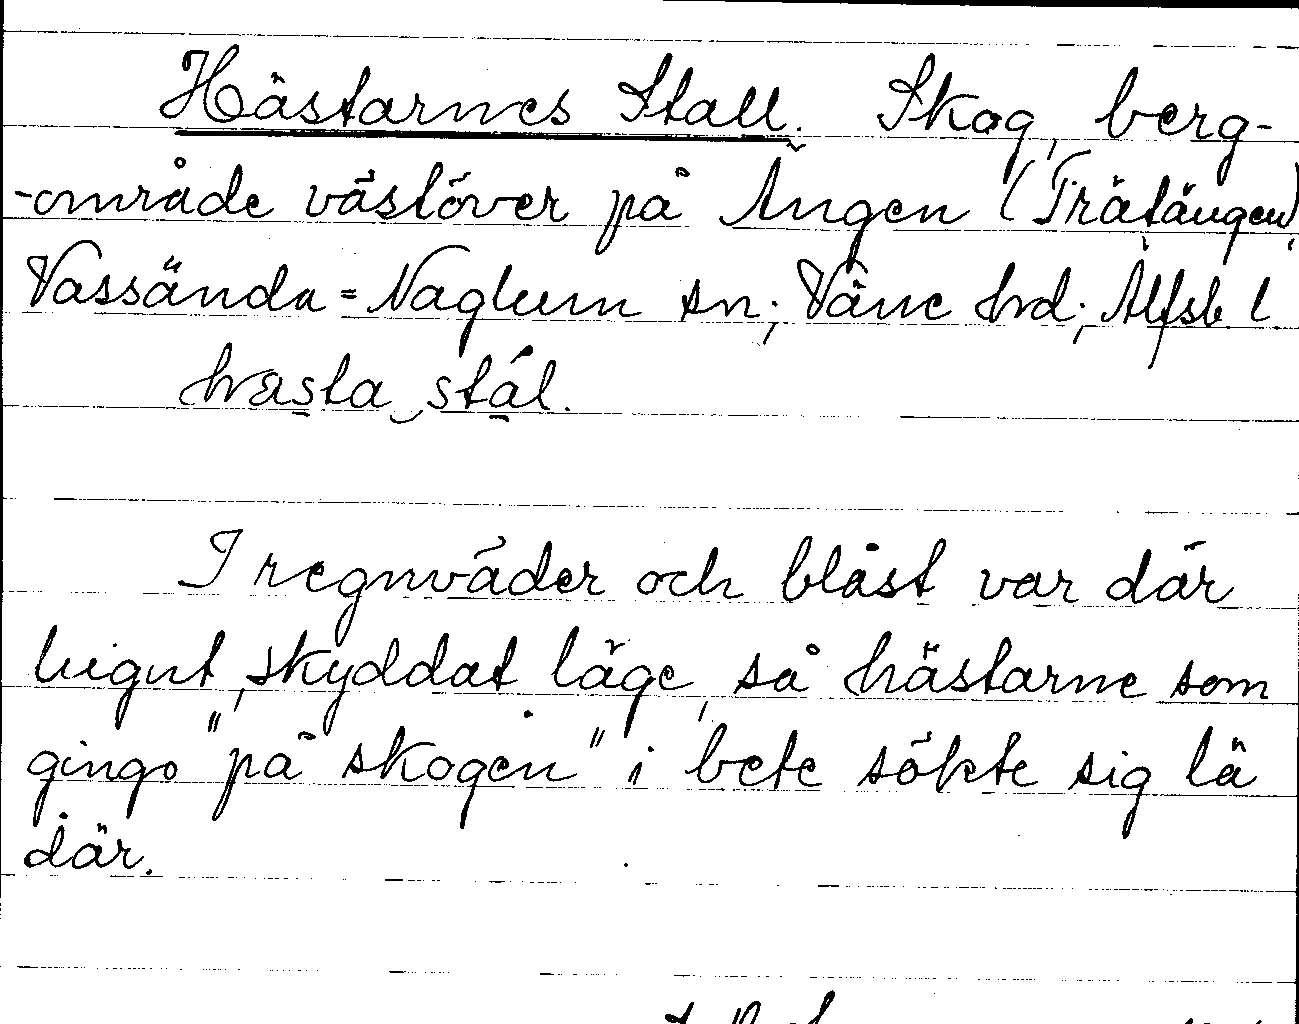 Hästarnes Stall. Skog, berg-
-område västöver på Ängen (Trätängen),
Vassända=Naglum sn; Väne hd; Älfsb. l.
hæsta stál.
I regnväder och blåst var där
lugnt, skyddat läge, så hästarne som
gingo "på skogen" i bete sökte sig lä
där.